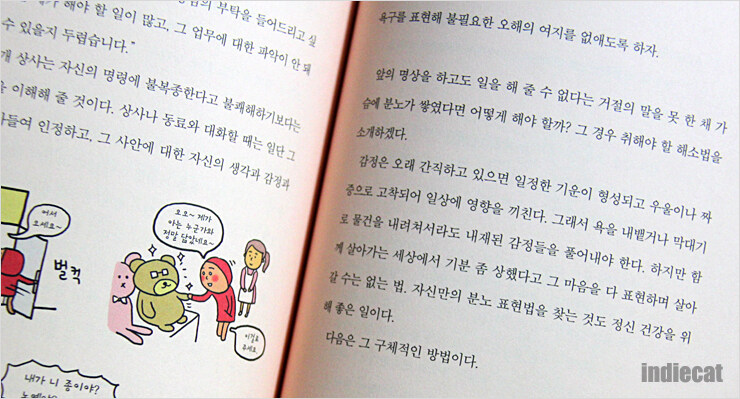 부탁을 들어드리고 싶
가 해야 할 일이 많고, 그 업무에 대한 파악이 안 돼
수 있을지 두렵습니다.”
개 상사는 자신의 명령에 불복종한다고 불쾌해하기보다는
이해해 줄 것이다. 상사나 동료와 대화할 때는 일단 그
아들여 인정하고, 그 사안에 대한 자신의 생각과 감정과
어서
오세요~
벌컥
오오~ 제가
아는 누군가와
정말 닮았네요~
이걸로
주세요
내가 니 종이야?
욕구를 표현해 불필요한 오해의 여지를 없애도록 하자.
앞의 명상을 하고도 일을 해 줄 수 없다는 거절의 말을 못 한 채 가
슴에 분노가 쌓였다면 어떻게 해야 할까? 그 경우 취해야 할 해소법을
소개하겠다.
감정은 오래 간직하고 있으면 일정한 기운이 형성되고 우울이나 짜
증으로 고착되어 일상에 영향을 끼친다. 그래서 욕을 내뱉거나 막대기
로 물건을 내려쳐서라도 내재된 감정들을 풀어내야 한다. 하지만 함
께 살아가는 세상에서 기분 좀 상했다고 그 마음을 다 표현하며 살아
갈 수는 없는 법. 자신만의 분노 표현법을 찾는 것도 정신 건강을 위
해 좋은 일이다.
다음은 그 구체적인 방법이다.
indiecat